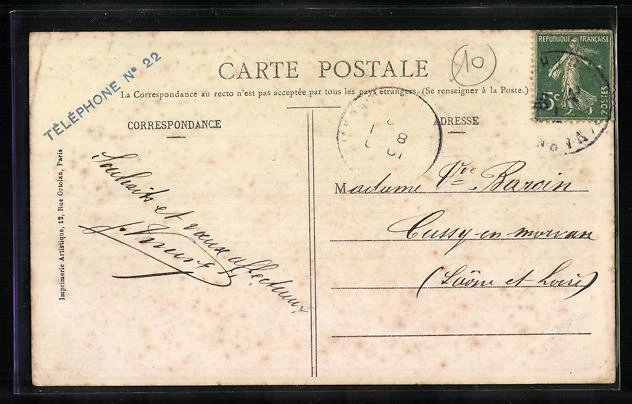 TÉLÉPHONE Nº 22
CARTE POSTALE
10
RÉPUBLIQUE FRANÇAISE
5c
POSTES
La Correspondance au recto n'est pas acceptée par tous les pays étrangers. (Se renseigner à la Poste.)
CORRESPONDANCE
ADRESSE
Souhaits et vœux affectueux
Madame Vve Baroin
Cussy-en-morvan
(Saône et Loire)
Imprimerie Artistique, 12, Rue Ortolan, Paris